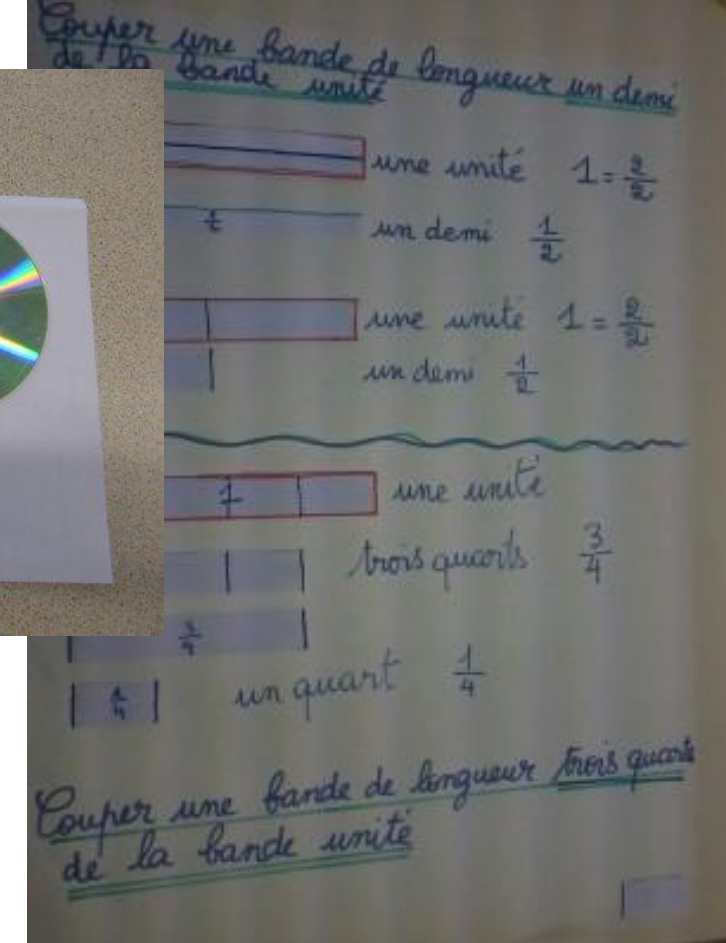 Couper une bande de longueur un demi
de la bande unité
une unité 1 = 2/2
1/2 un demi 1/2
une unité 1 = 2/2
un demi 1/2
1 une unité
trois quarts 3/4
3/4
1/4 un quart 1/4
Couper une bande de longueur trois quarts
de la bande unité